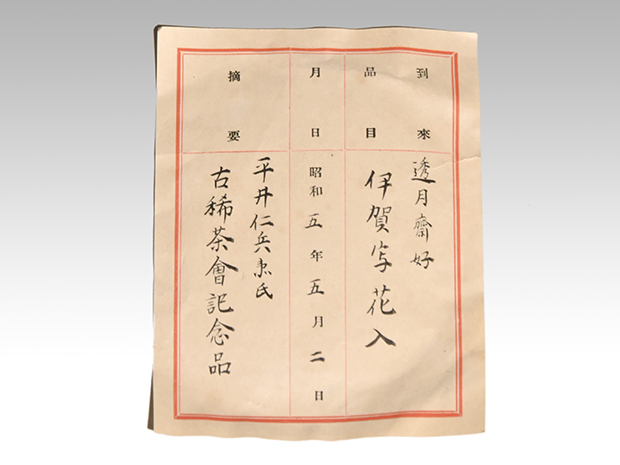 到來
品目
透月齋好
伊賀写花入
月日
昭和五年五月二日
摘要
平井仁兵衞氏
古稀茶會記念品